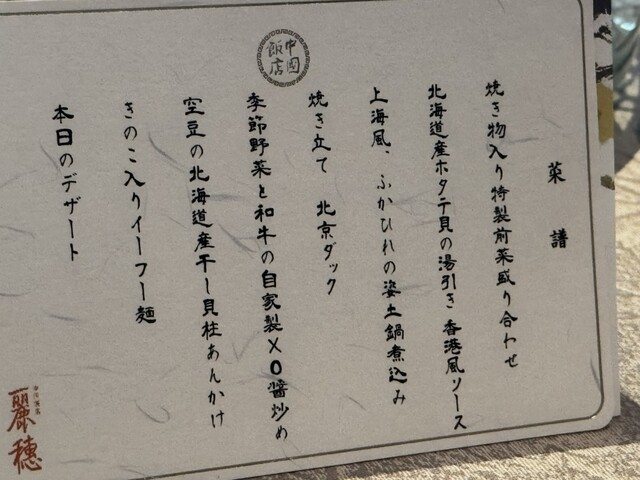 中國飯店
菜譜
焼き物入り特製前菜盛り合わせ
北海道産ホタテ貝の湯引き 香港風ソース
上海風、ふかひれの姿土鍋煮込み
焼き立て 北京ダック
季節野菜と和牛の自家製XO醤炒め
空豆の北海道産干し貝柱あんかけ
きのこ入りイーフー麺
本日のデザート
麗穂